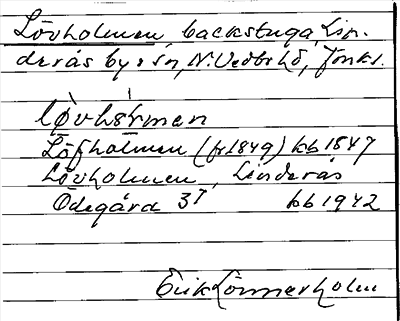 Lövholmen backstuga, Lin-
derås by o sn, N. Vedbo hd, Jönk l.
Löfholmen (fr 1849) kb 1847
Lövholmen, Linderås
Ödegård 37 kb 1942
Erik Lönnerholm